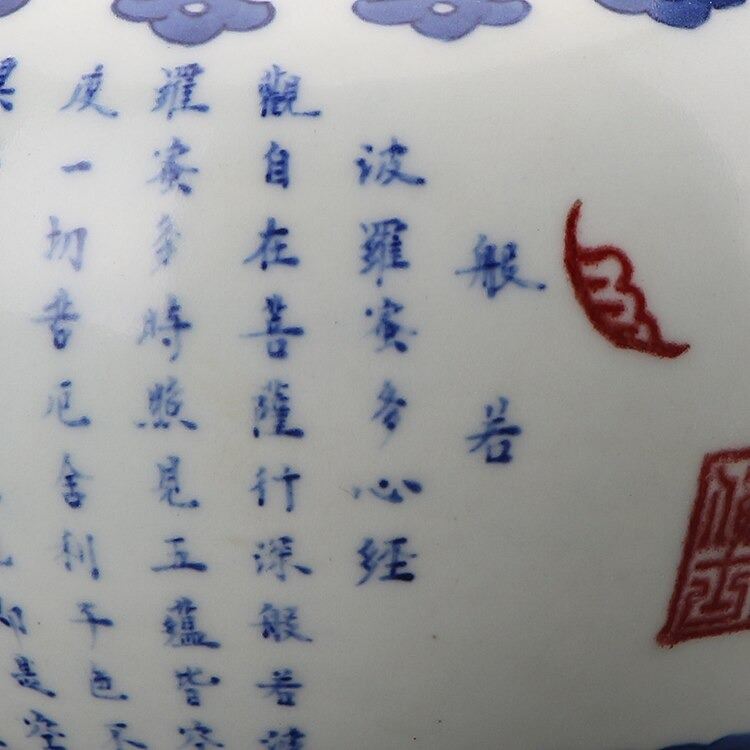 般若
波羅蜜多心經
觀自在菩薩行深般若波
羅蜜多時照見五蘊皆空
度一切苦厄舍利子色不
是空